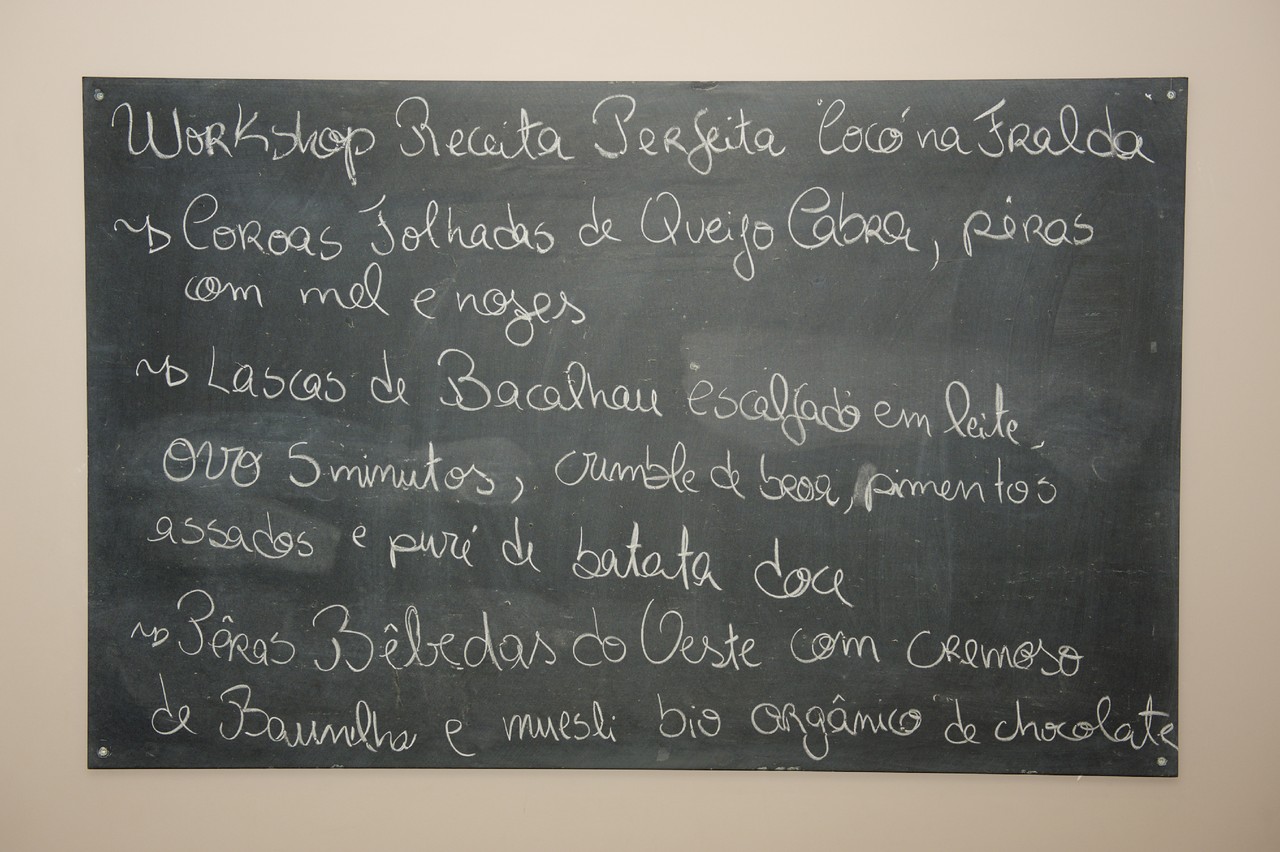 Workshop Receita Perfeita "Cocó na Fralda"
Coroas Folhadas de Queijo Cabra, pêras
com mel e nozes
Lascas de Bacalhau escalfado em leite,
ovo 5 minutos, crumble de broa, pimentos
assados e puré de batata doce
Pêras Bêbedas do Oeste com cremoso
de Baunilha e muesli bio orgânico de chocolate